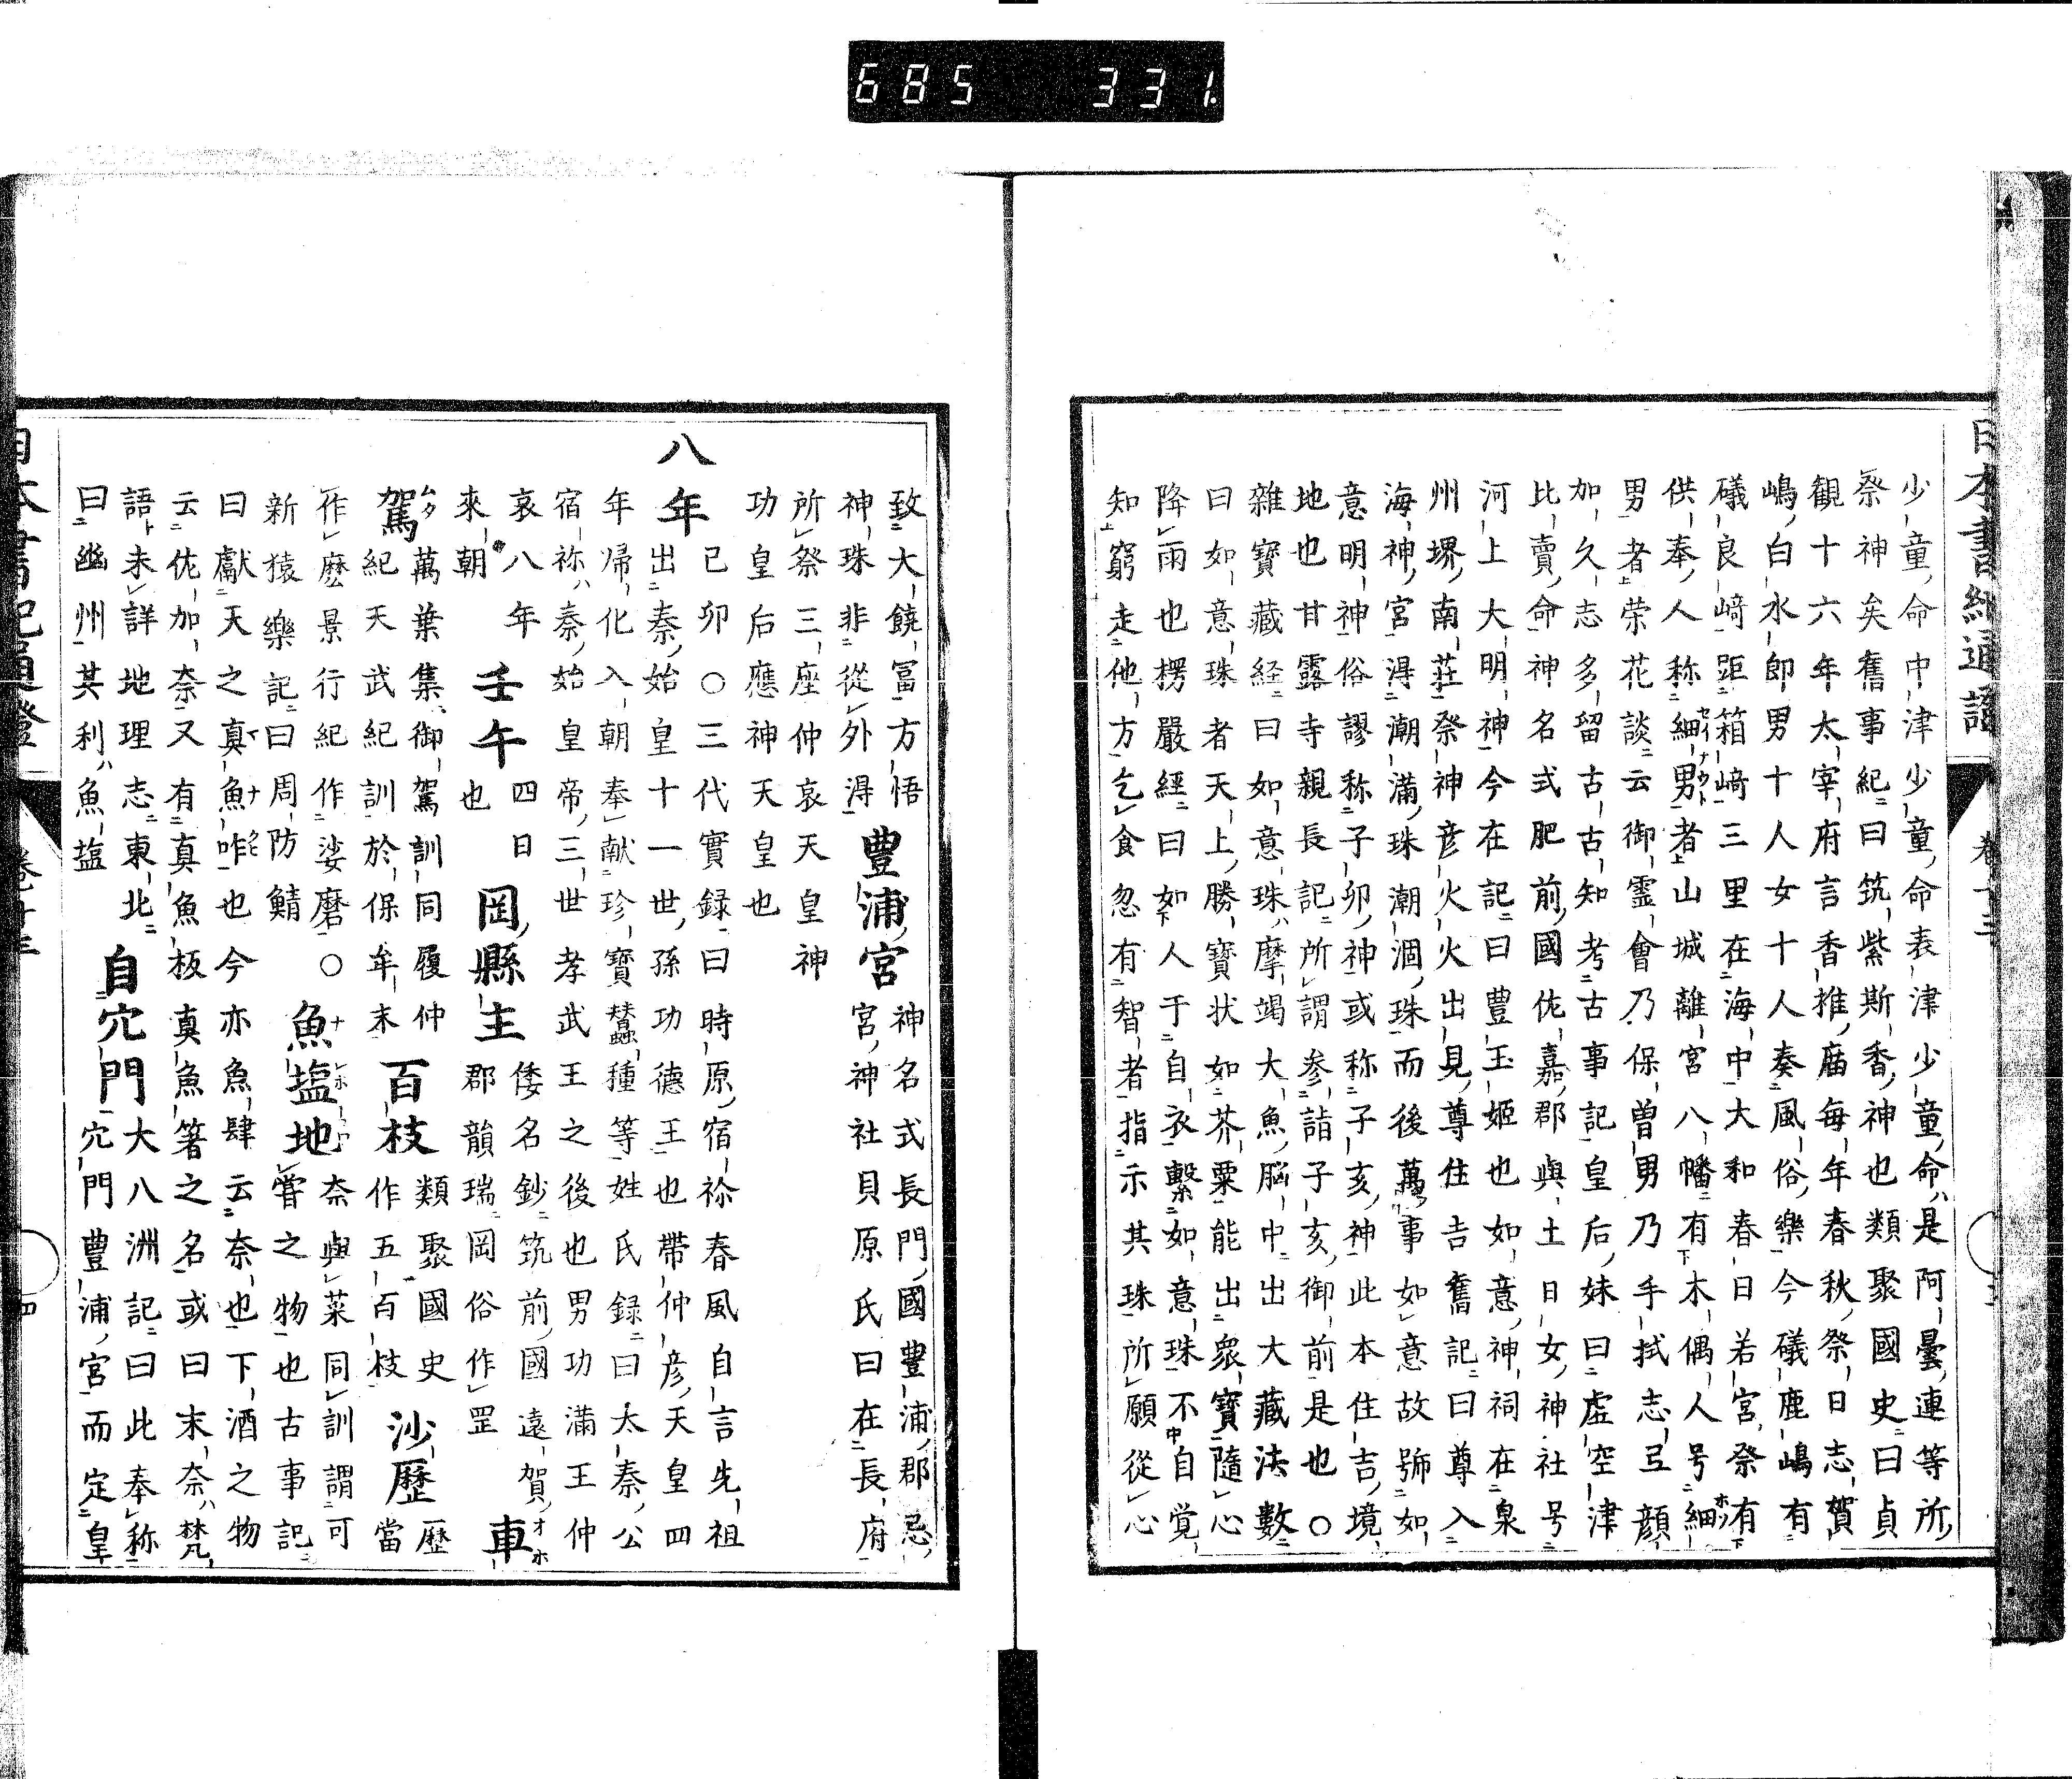 685 331
日本書紀通證
卷十三
少童命中津少童命表津少童命是阿曇連等所
祭神矣舊事紀曰筑紫斯香神也類聚國史曰貞
観十六年太宰府言香推庙每年春秋祭日志賀
嶋白水郎男十人女十人奏風俗樂今礒鹿嶋有
礒良﨑距箱﨑三里在海中大和春日若宮祭有
供奉人称細男者山城離宮八幡有木偶人号細
男者荣花談云御霊會乃保曽男乃手拭志弖顔
加久志多留古古知考古事記皇后妹曰虛空津
比賣命神名式肥前國佐嘉郡與土日女神社号
河上大明神今在記曰豊玉姬也如意神祠在泉
州堺南莊祭神彦火火出見尊住吉舊記曰尊入
海神宮淂潮満珠潮涸珠而後萬事如意故號如
意明神俗謬称子卯神或称子亥神此本住吉境
地也甘露寺親長記所謂参詣子亥御前是也〇
雜寶藏経曰如意珠摩竭大魚脳中出大藏法數
曰如意珠者天上勝寶状如芥粟能出衆寶隨心
降雨也楞嚴經曰如人于自衣繫如意珠不自覚
知窮走他方乞食忽有智者指示其珠所願從心
致大饒富方悟
神珠非從外淂 豊浦宮 神名式長門國豊浦郡忌
宮神社貝原氏曰在長府
所祭三座仲哀天皇神
功皇后應神天皇也
八年 己卯〇三代實録曰時原宿祢春風自言先祖
出秦始皇十一世孫功德王也帶仲彦天皇四
年帰化入朝奉献珍寶蠶種等姓氏録曰太秦公
宿祢秦始皇帝三世孝武王之後也男功満王仲
哀八年
來朝 壬午 四日
也 岡縣主 倭名鈔筑前國遠賀
郡韻瑞岡俗作罡 車
駕 萬葉集御駕訓同履仲
紀天武紀訓於保牟末 百枝 類聚國史
作五百枝 沙歷 歷
當
作麽景行紀作娑磨〇
新猿樂記曰周防鯖 魚塩地 奈與菜同訓謂可
嘗之物也古事記
曰獻天之真魚咋也今亦魚肆云奈也下酒之物
云佐加奈又有真魚板真魚箸之名或曰末奈梵
語未詳地理志東北
曰幽州其利魚塩 自穴門 大八洲記曰此奉称
穴門豊浦宮而定皇
日本書紀通證
卷十三
四